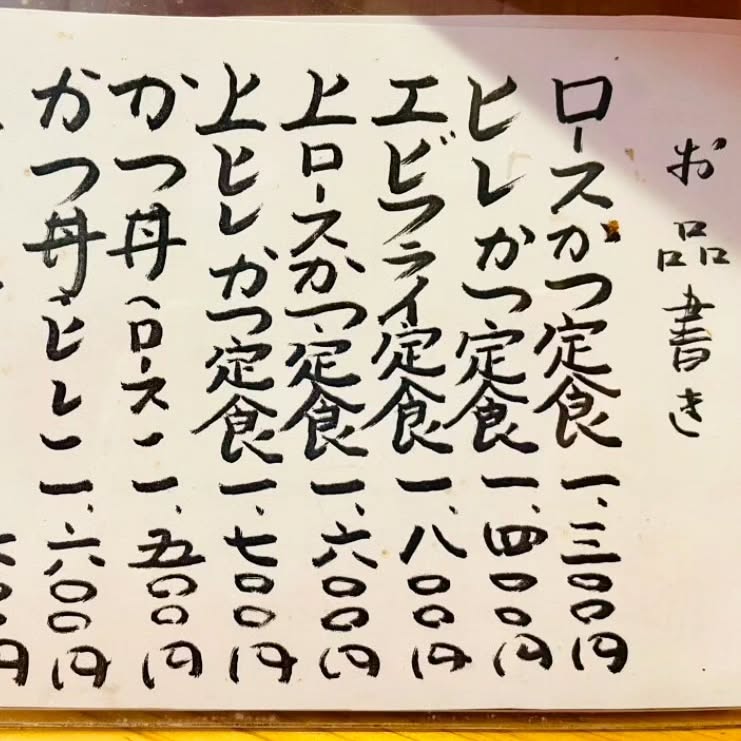 お品書き
ロースかつ定食 一、三〇〇円
ヒレかつ定食 一、四〇〇円
エビフライ定食 一、八〇〇円
上ロースかつ定食 一、六〇〇円
上ヒレかつ定食 一、七〇〇円
かつ丼(ロース) 一、五〇〇円
かつ丼(ヒレ) 一、六〇〇円